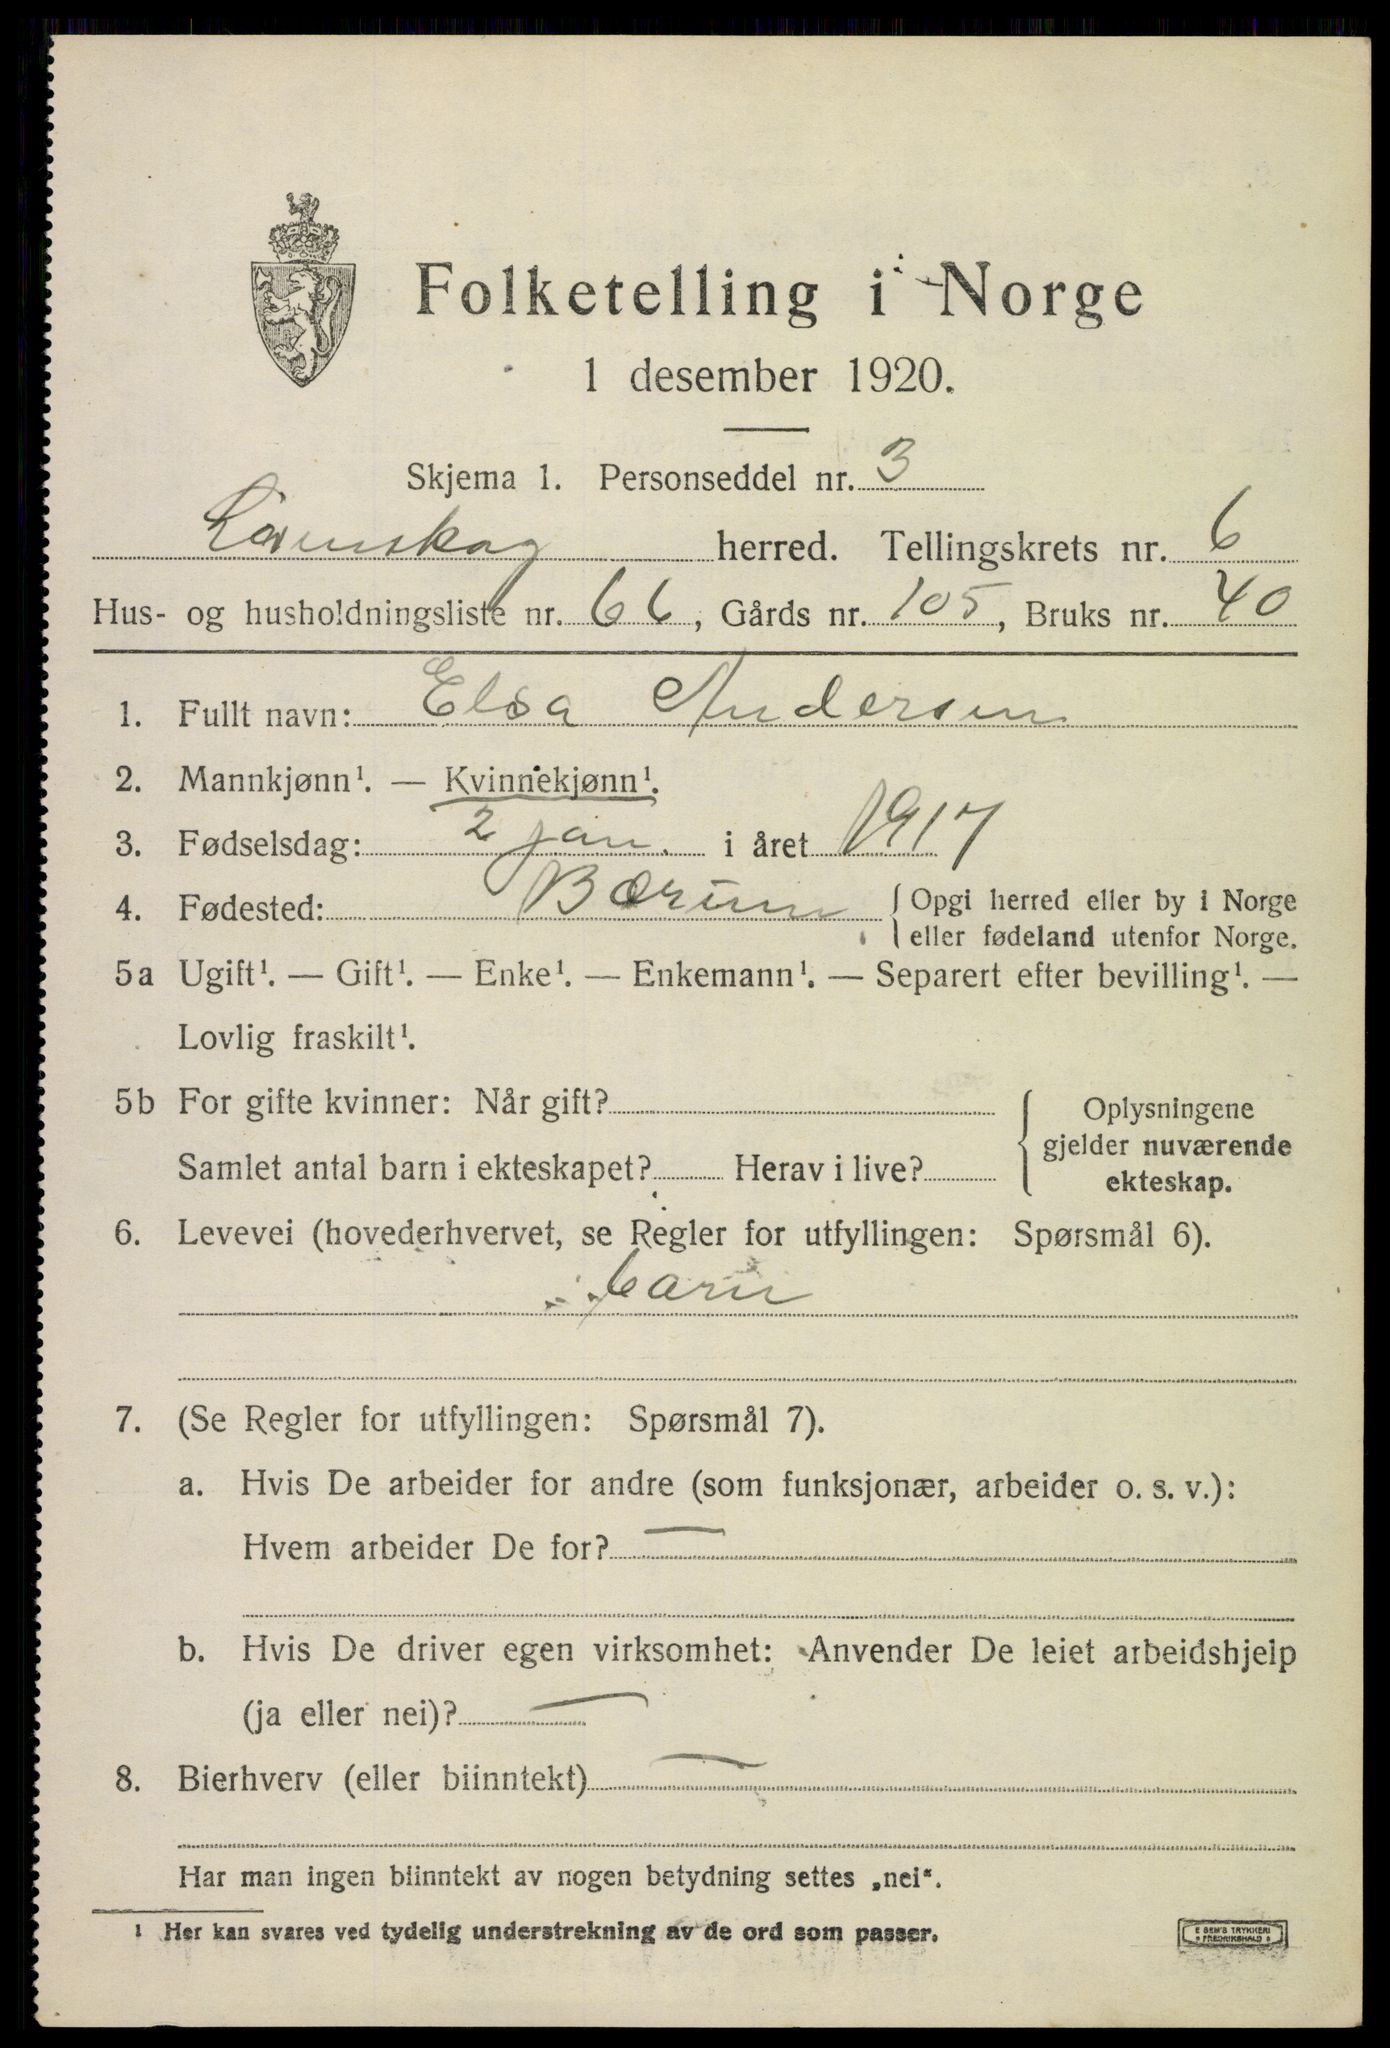 Folketelling i Norge
1 desember 1920.
Skjema 1. Personseddel nr. 3
Lørenskog herred. Tellingskrets nr. 6
Hus- og husholdningsliste nr. 66, Gårds nr. 105, Bruks nr. 40
1. Fullt navn: Elsa Andersen
2. Mannkjønn¹. — Kvinnekjønn¹.
3. Fødselsdag: 2 jan. i året 1917
4. Fødested: Bærum { Opgi herred eller by i Norge
eller fødeland utenfor Norge.
5a Ugift¹. — Gift¹. — Enke¹. — Enkemann¹. — Separert efter bevilling¹. —
Lovlig fraskilt¹.
5b For gifte kvinner: Når gift? { Oplysningene
gjelder nuværende
Samlet antal barn i ekteskapet? Herav i live?
ekteskap.
6. Levevei (hovederhvervet, se Regler for utfyllingen: Spørsmål 6).
barn
7. (Se Regler for utfyllingen: Spørsmål 7).
a. Hvis De arbeider for andre (som funksjonær, arbeider o. s. v.):
Hvem arbeider De for? —
b. Hvis De driver egen virksomhet: Anvender De leiet arbeidshjelp
(ja eller nei)? —
8. Bierhverv (eller biinntekt) —
Har man ingen biinntekt av nogen betydning settes „nei“.
¹ Her kan svares ved tydelig understrekning av de ord som passer.
E SEM'S TRYKKERI
FREDRIKSHALD